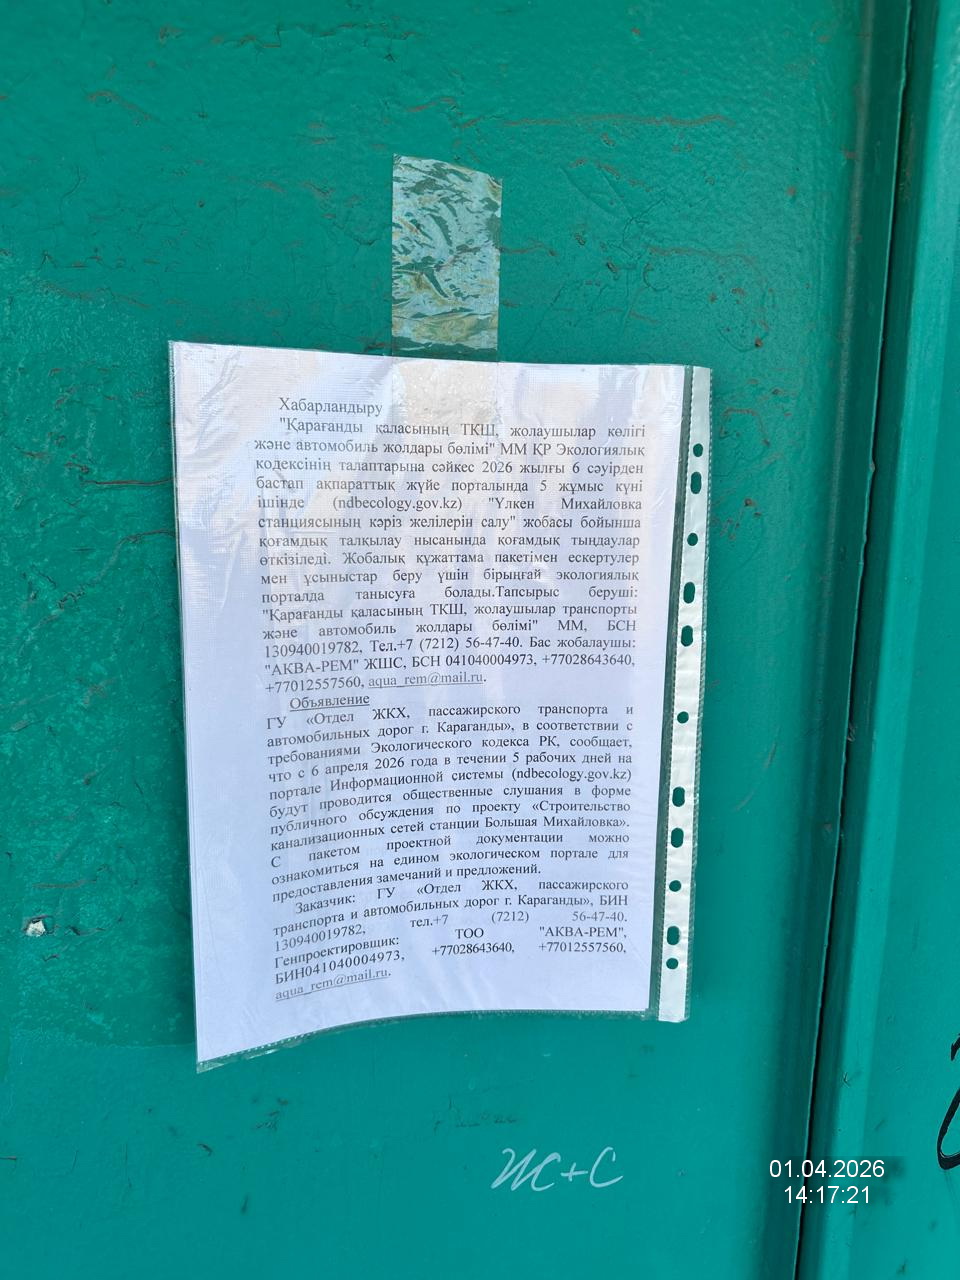 Хабарландыру
"Қарағанды қаласының ТКШ, жолаушылар көлігі
және автомобиль жолдары бөлімі" ММ ҚР Экологиялық
кодексінің талаптарына сәйкес 2026 жылғы 6 сәуірден
бастап ақпараттық жүйе порталында 5 жұмыс күні
ішінде (ndbecology.gov.kz) "Үлкен Михайловка
станциясының кәріз желілерін салу" жобасы бойынша
қоғамдық талқылау нысанында қоғамдық тыңдаулар
өткізіледі. Жобалық құжаттама пакетімен ескертулер
мен ұсыныстар беру үшін бірыңғай экологиялық
порталда танысуға болады.Тапсырыс беруші:
"Қарағанды қаласының ТКШ, жолаушылар транспорты
және автомобиль жолдары бөлімі" ММ, БСН
130940019782, Тел.+7 (7212) 56-47-40. Бас жобалаушы:
"АКВА-РЕМ" ЖШС, БСН 041040004973, +77028643640,
+77012557560, aqua_rem@mail.ru.
Объявление
ГУ «Отдел ЖКХ, пассажирского транспорта и
автомобильных дорог г. Караганды», в соответствии с
требованиями Экологического кодекса РК, сообщает,
что с 6 апреля 2026 года в течении 5 рабочих дней на
портале Информационной системы (ndbecology.gov.kz)
будут проводится общественные слушания в форме
публичного обсуждения по проекту «Строительство
канализационных сетей станции Большая Михайловка».
С пакетом проектной документации можно
ознакомиться на едином экологическом портале для
предоставления замечаний и предложений.
Заказчик: ГУ «Отдел ЖКХ, пассажирского
транспорта и автомобильных дорог г. Караганды», БИН
130940019782, тел.+7 (7212) 56-47-40.
Генпроектировщик: ТОО "АКВА-РЕМ",
БИН041040004973, +77028643640, +77012557560,
aqua_rem@mail.ru.
Ж+С
01.04.2026
14:17:21